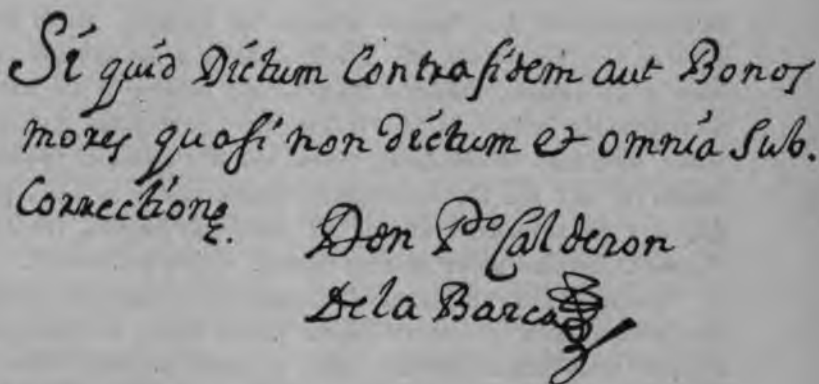 Si quid Dictum Contra fidem aut Bonos
mores quasi non dictum et omnia Sub.
Correctione.
Don Pdo Calderon
De la Barca